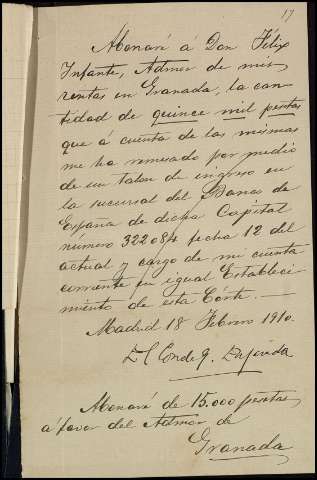 17
Abonaré á Don Félix
Infante, Admor de mis
rentas en Granada, la can-
tidad de quince mil pesetas
que á cuenta de las mismas
me ha remesado por medio
de un talon de ingreso en
la sucursal del Banco de
España de dicha Capital
número 322084 fecha 12 del
actual y cargo de mi cuenta
corriente en igual Estableci-
miento de esta Córte.
Madrid 18 Febrero 1910.
El Conde
Abonaré de 15.000 pesetas
á favor del Admor de
Granada